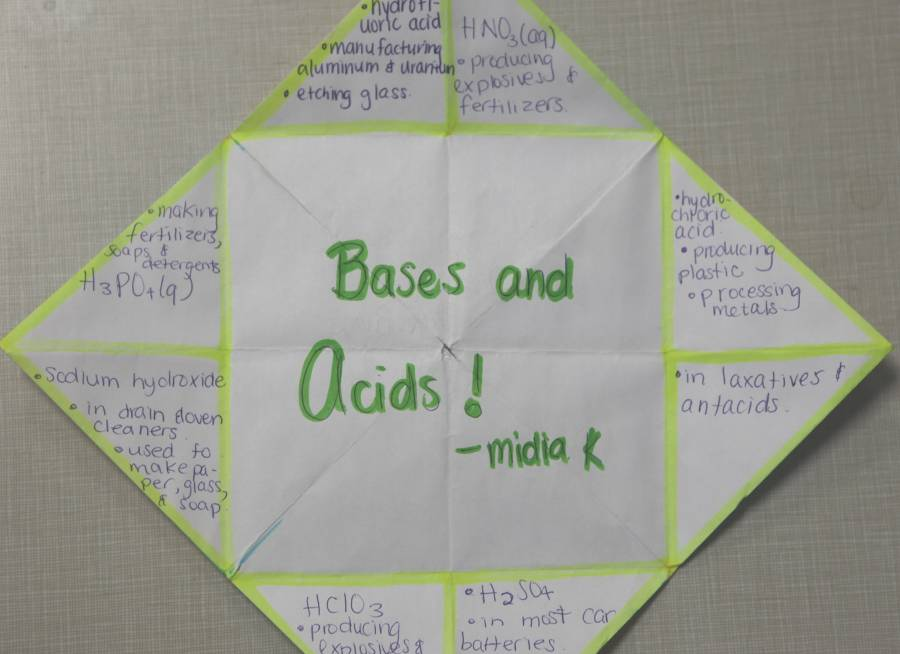 • hydrofl-
uoric acid
• manufacturing
aluminum & uranium
• etching glass.
HNO₃(aq)
• producing
explosives &
fertilizers.
• making
fertilizers,
soaps &
detergents
H₃PO₄(q)
• hydro-
chloric
acid
• producing
plastic
• processing
metals
Bases and
Acids!
- midia K
• Sodium hydroxide
• in drain & oven
cleaners.
• used to
make pa-
per, glass,
& soap.
• in laxatives &
antacids.
HClO₃
• producing
explosives &
• H₂SO₄
• in most car
batteries.